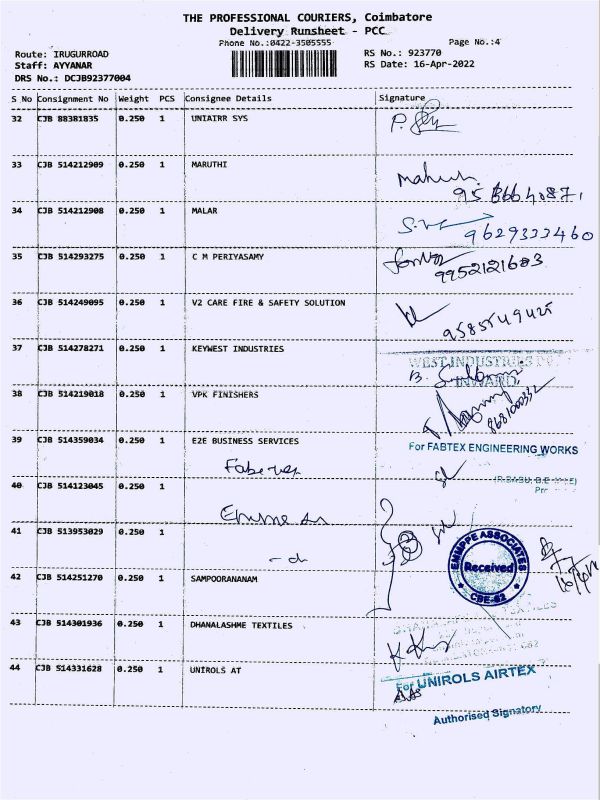 THE PROFESSIONAL COURIERS, Coimbatore
Delivery Runsheet - PCC
Phone No.:0422-3505555
Page No.:4
Route: IRUGURROAD
RS No.: 923770
Staff: AYYANAR
RS Date: 16-Apr-2022
DRS No.: DCJB92377004
S No Consignment No Weight PCS Consignee Details Signature
32 CJB 88381835 0.250 1 UNIAIRR SYS
33 CJB 514212909 0.250 1 MARUTHI
34 CJB 514212908 0.250 1 MALAR
9629333460
35 CJB 514293275 0.250 1 C M PERIYASAMY
9952121683
36 CJB 514249095 0.250 1 V2 CARE FIRE & SAFETY SOLUTION
9585549425
37 CJB 514278271 0.250 1 KEYWEST INDUSTRIES
WEST INDUSTRIES
INWARD
38 CJB 514219018 0.250 1 VPK FINISHERS
8681000332
39 CJB 514359034 0.250 1 E2E BUSINESS SERVICES
For FABTEX ENGINEERING WORKS
40 CJB 514123045 0.250 1
41 CJB 513953029 0.250 1
ENMPPE ASSOCIATES
Received
CBE-62
42 CJB 514251270 0.250 1 SAMPOORANANAM
43 CJB 514301936 0.250 1 DHANALASHME TEXTILES
44 CJB 514331628 0.250 1 UNIROLS AT
For UNIROLS AIRTEX
Authorised Signatory